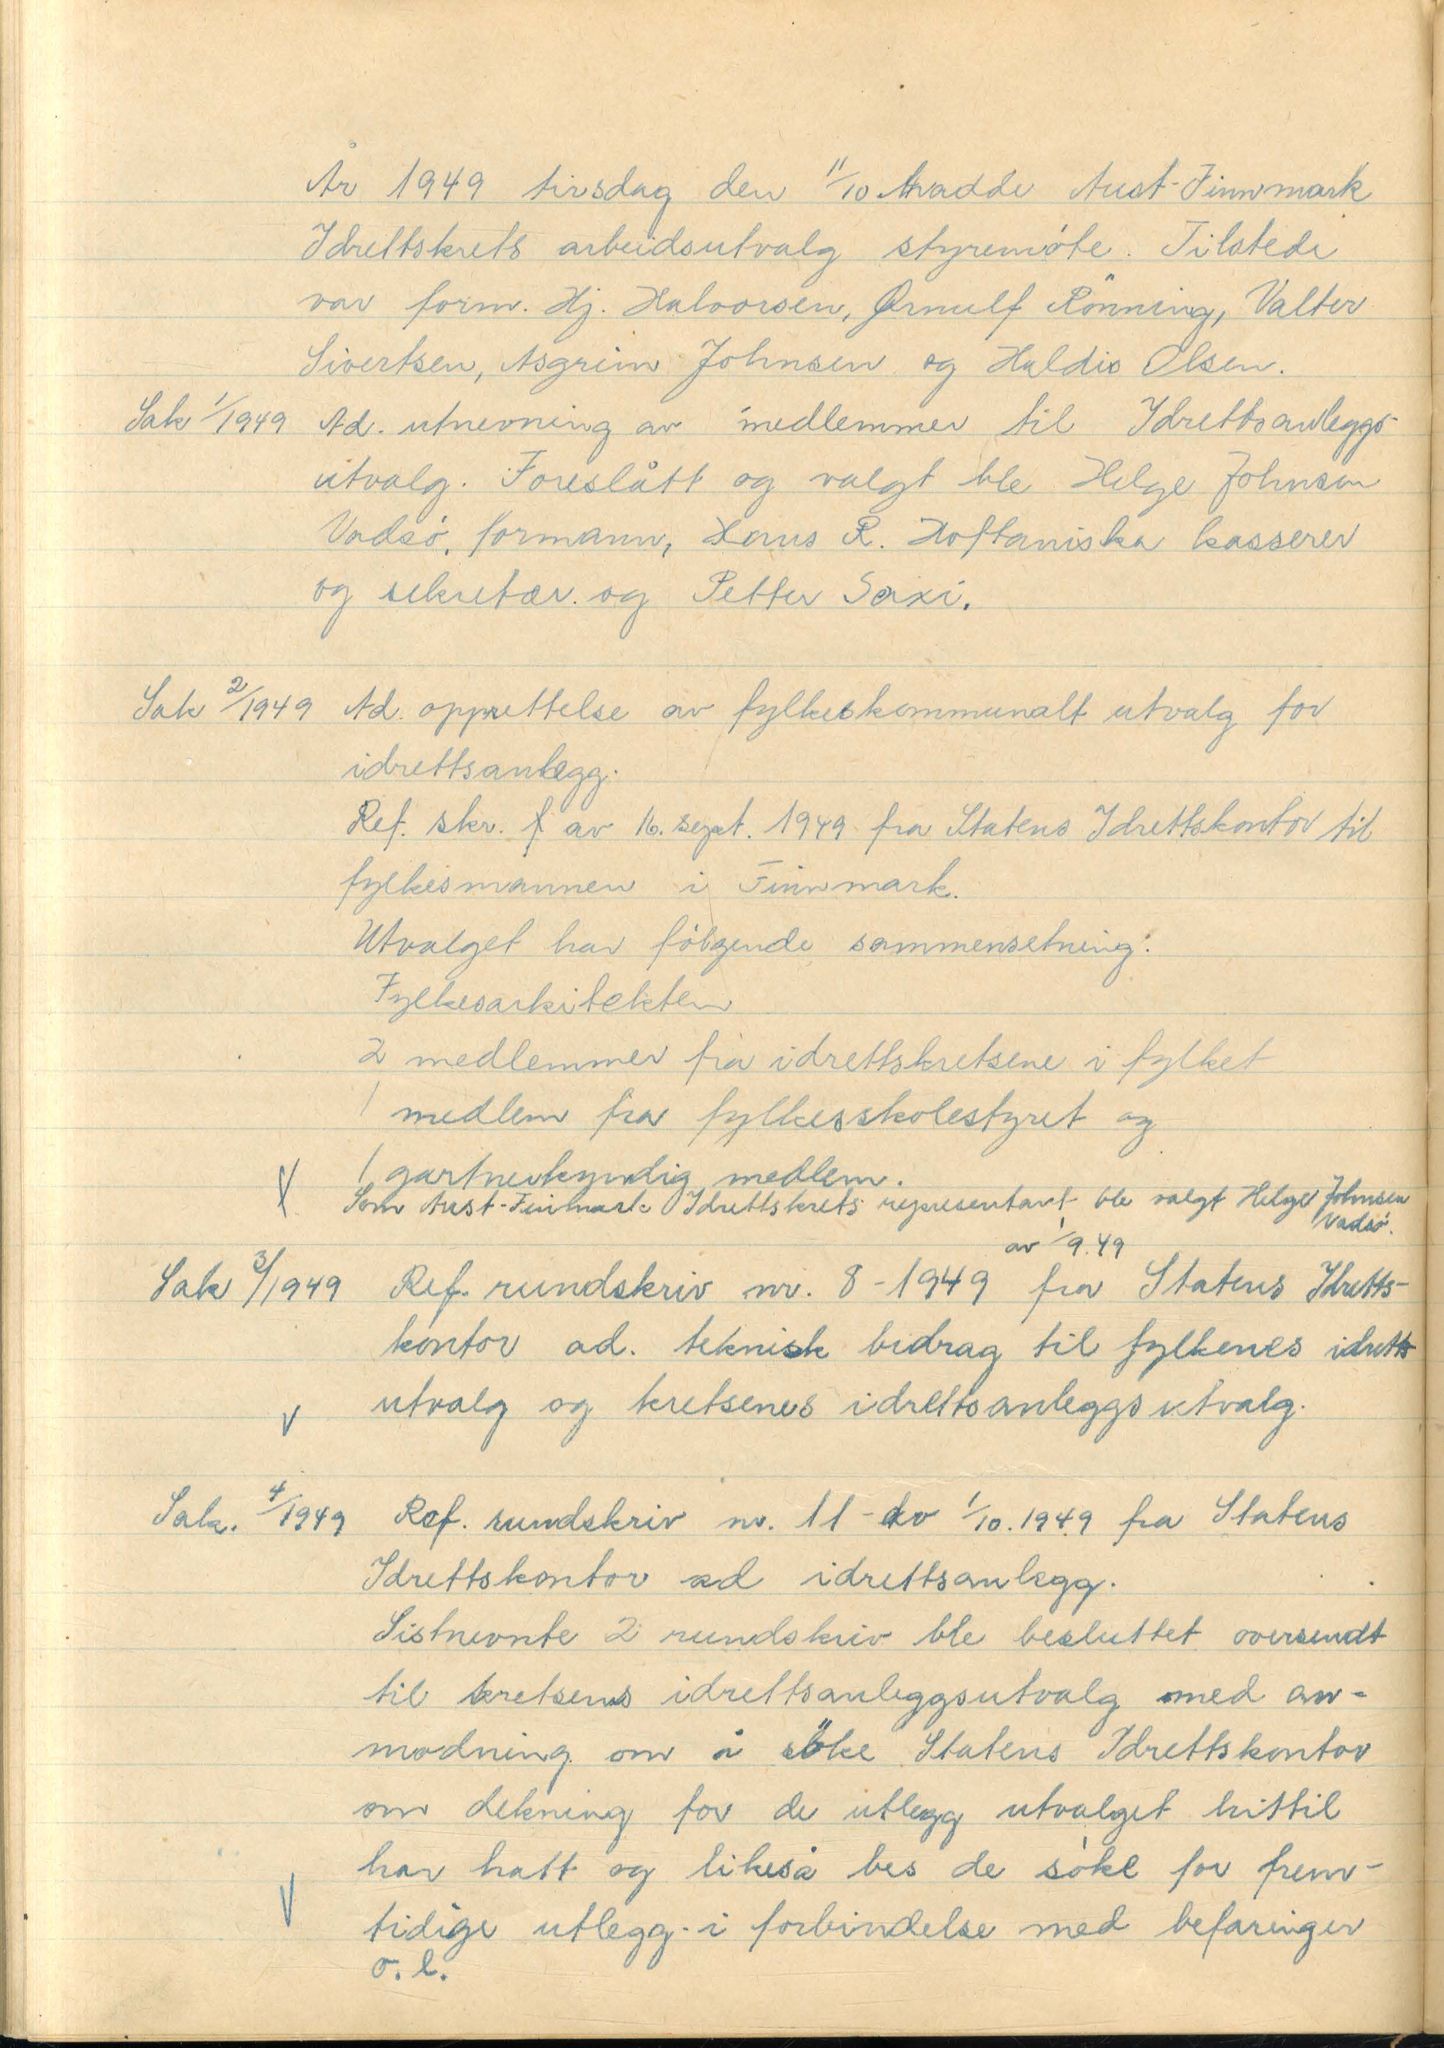 År 1949 tirsdag den 11/10 hadde Aust-Finnmark
Idrettskrets arbeidsutvalg styremöte. Tilstede
var form. Hj. Halvorsen, Ørnulf Rönning, Valter
Sivertsen, Asgrim Johnsen og Haldis Olsen.
Sak 1/1949 Ad. utnevning av medlemmer til Idrettsanleggs-
utvalg. Foreslått og valgt ble Helge Johnsen
Vadsö, formann, Hans R. Hoftaniska kasserer
og sekretær og Petter Saxi.
Sak 2/1949 Ad. opprettelse av fylkeskommunalt utvalg for
idrettsanlegg.
Ref. skr. av 16. sept. 1949 fra Statens Idrettskontor til
fylkesmannen i Finnmark.
Utvalget har fölgende sammensetning:
Fylkesarkitekten
2 medlemmer fra idrettskretsene i fylket
1 medlem fra fylkesskolestyret og
1 gartnerkyndig medlem.
Som Aust-Finmark Idrettskrets representant ble valgt Helge Johnsen
Vadsö.
av 1/9.49
Sak 3/1949 Ref. rundskriv nr. 8-1949 fra Statens Idretts-
kontor ad. teknisk bidrag til fylkenes idretts
utvalg og kretsenes idrettsanleggsutvalg.
Sak. 4/1949 Ref. rundskriv nr. 11 - av 1/10.1949 fra Statens
Idrettskontor ad idrettsanlegg.
Sistnevnte 2 rundskriv ble besluttet oversendt
til kretsens idrettsanleggsutvalg med an-
modning om å söke Statens Idrettskontor
om dekning for de utlegg utvalget hittil
har hatt og likeså bes de söke for frem-
tidige utlegg i forbindelse med befaringer
o.l.